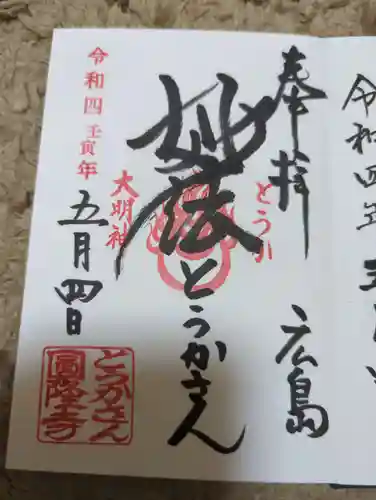 奉拝
広島
とうか
妙法
とうかさん
大明神
令和四壬寅年
五月四日
とうかさん
圓隆寺
令和四年